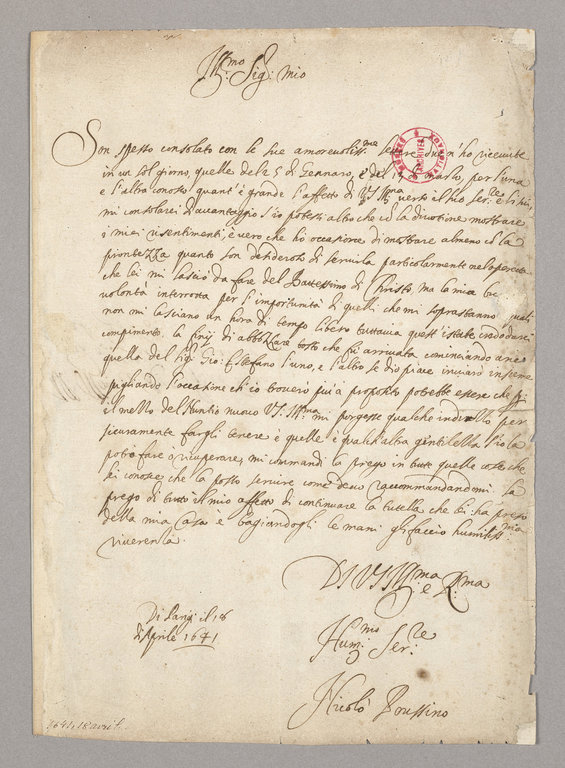 Ill.mo Sig.r mio
Son spesso consolato con le sue amorevoliss.me lettere due n'ho ricevute
in un sol giorno, quelle del 25 di Gennaro, e del di Marzo, per l'una
e l'altra conosco quant'è grande l'affetto di VS Ill.ma verso il suo Ser.re e
mi consolarei d'avantaggio s'io potessi altro che con la divotione mostrare
i miei risentimenti, è vero che ho occasione di mostrare almeno con la
prontezza quanto son desideroso di servirla particolarmente nel operetta
che lei mi lasciò da fare del Battessimo di Christo, ma la mia
volontà interrotta per l'importunità di quelli che mi soprastanno quali
non mi lasciano un hora di tempo libero tuttavia quest'estate
compimento, la finij di abbozzare tosto che fui arrivato cominciando anco
quella del Sig.r Gio: Stefano l'uno, e l'altro se dio piace inviarò insieme
pigliando l'occasione ch'io troverò più a proposito potrebbe essere che
il mezzo del Nuntio nuovo VS. Ill.ma mi porgesse qualche inditio per
sicuramente fargli tenere e quelle e qualch'altra gentilezza s'io la
potrò fare o ricuperare, mi commandi la prego in tutte quelle cose che
lei conosce che la posso servire come devo raccommandandomi la
prego di tutto il mio affetto di continuare la tutella che lei ha preso
della mia Casa e bagiandogli le mani gli faccio humiliss.ma
riverenza.
Di VS Ill.ma e R.ma
Di Parigi il 18
d'Aprile 1641
Hum.mo Ser.re
Nicolò Poussino
1641, 18 avril